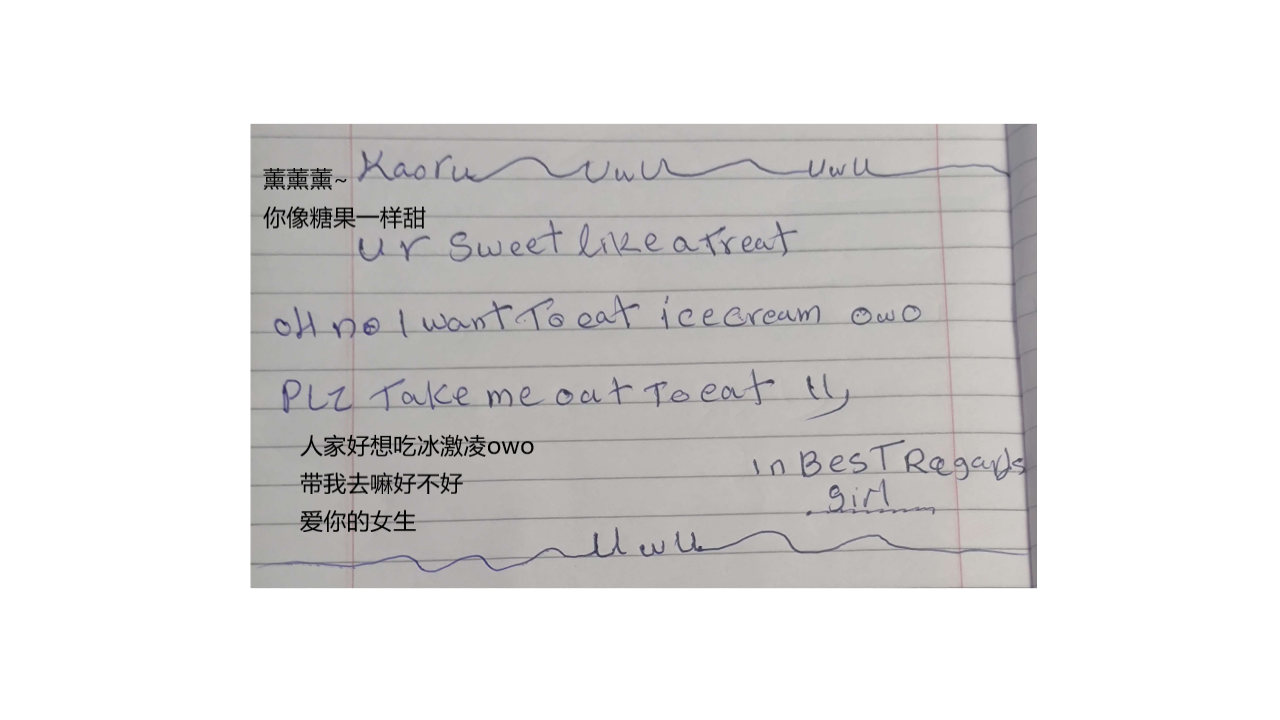 薰薰薰~
Kaoru UwU UwU
你像糖果一样甜
ur sweet like a Treat
oH no I want To eat icecream owo
PLZ Take me out To eat
人家好想吃冰激凌owo
in BesT Regards
带我去嘛好不好
girl
爱你的女生
UwU